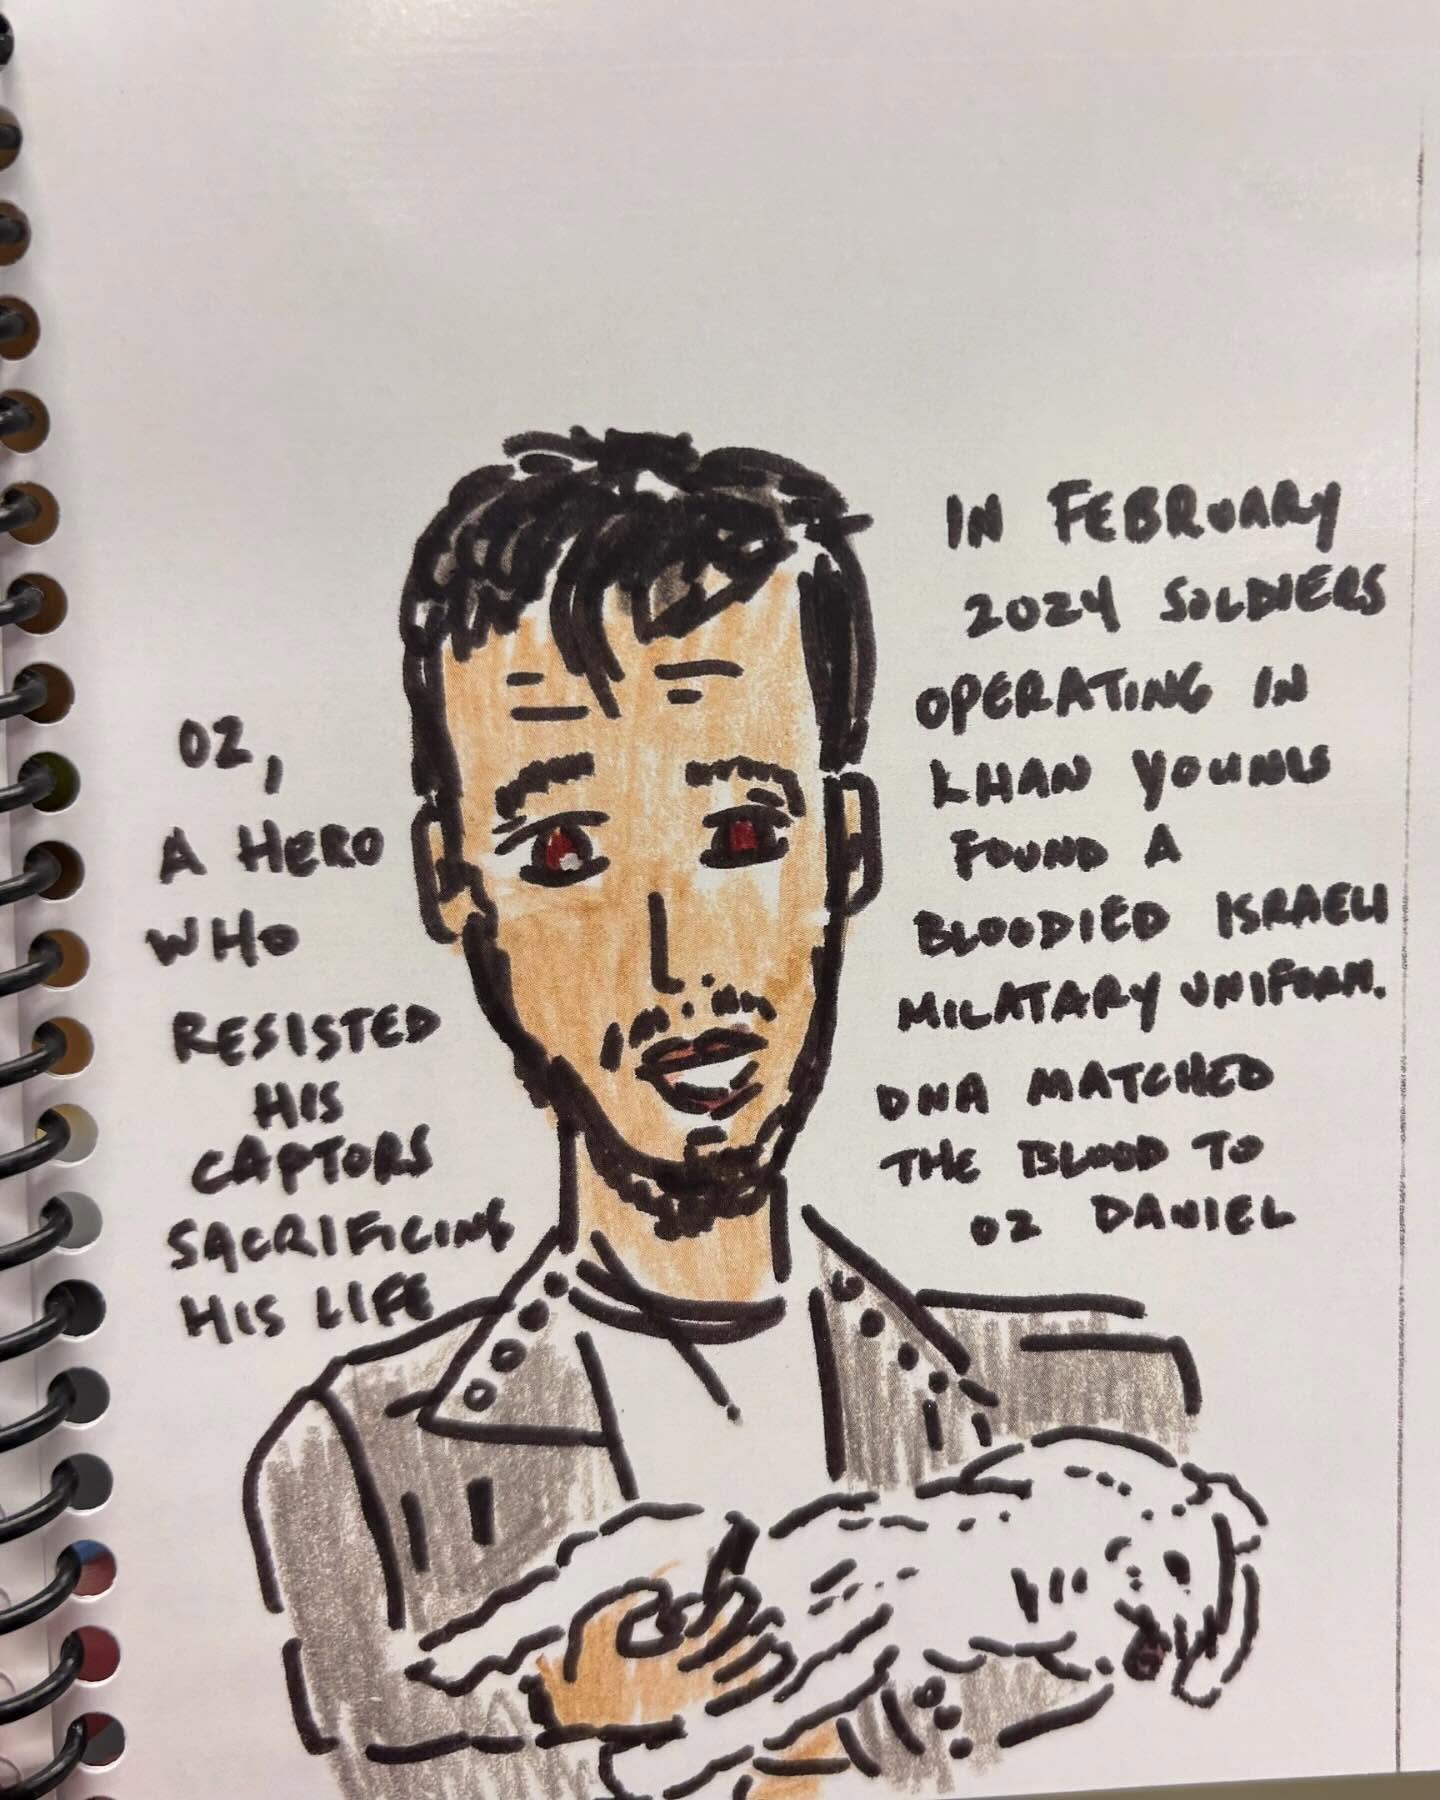 OZ,
A HERO
WHO
RESISTED
HIS
CAPTORS
SACRIFICING
HIS LIFE
IN FEBRUARY
2024 SOLDIERS
OPERATING IN
KHAN YOUNIS
FOUND A
BLOODIED ISRAELI
MILATARY UNIFORM.
DNA MATCHED
THE BLOOD TO
OZ DANIEL